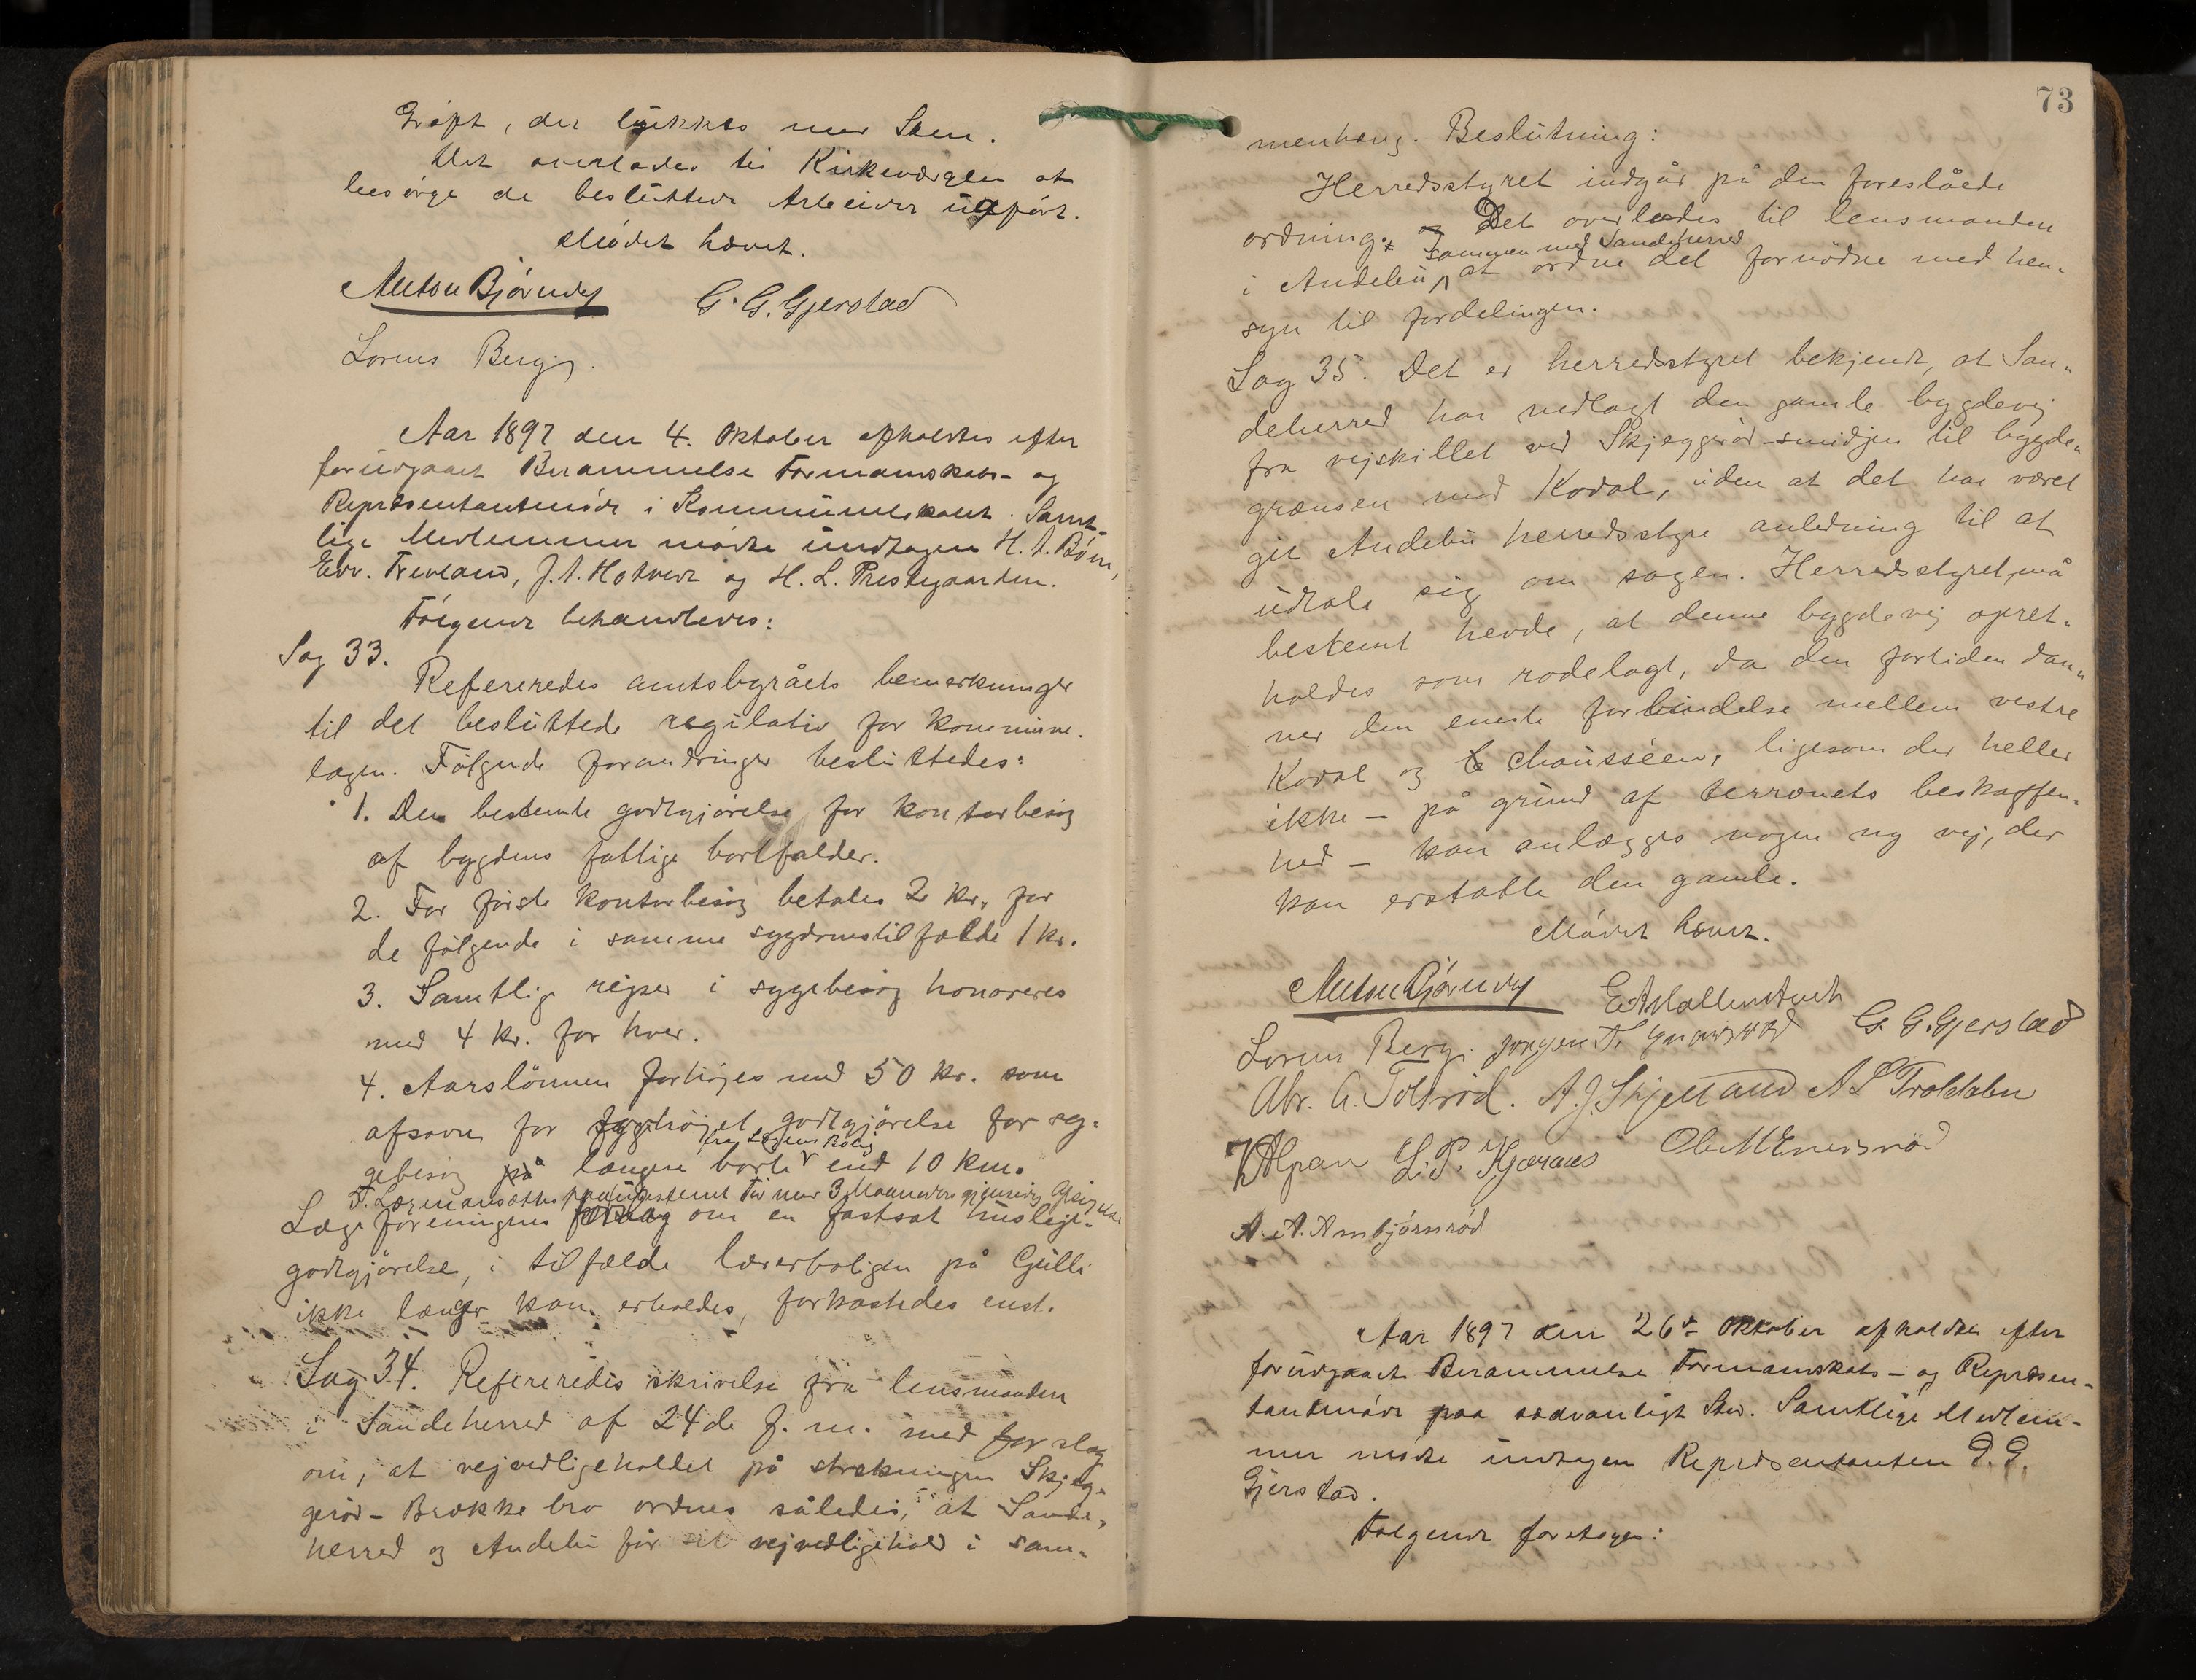 Grøft, der lukkes med Sten.
Det overlades til Kirkeværgen at
besørge de besluttede Arbeider udført.
Mødet hævet.
Anton Bjørndal G. G. Gjerstad
Lorens Berg.
Aar 1897 den 4. Oktober afholdtes efter
forudgaaet Berammelse Formannskabs- og
Repræsentantmøde i Kommunelokalet. Samt-
lige Medlemmer mødte undtagen H. A. Bøen,
Edv. Trevland, J. A. Hotvedt og H. L. Prestegaarden.
Følgende behandledes:
Sag 33.
Refereredes amtsbyråets bemerkninger
til det besluttede regulativ for kommune-
lægen. Følgende forandringer besluttedes:
1. Den bestemte godtgjørelse for kontorbesøg
af bygdens fattige bortfalder.
2. For første kontorbesøg betales 2 kr, for
de følgende i samme sygdomstilfælde 1 kr.
3. Samtlige rejser i sygebesøg honoreres
med 4 kr. for hver.
4. Aarslønnen forhøjes med 50 kr. som
afsavn for forhøjet godtgjørelse for sy-
fra Lægens Bolig
gebesøg på længere borte end 10 km.
5. Lægen ansættes paa ubestemt Tid med 3 Maaneders gjensidig Opsigelse
Lægeforeningens forslag om en fastsat husleje-
godtgjørelse, i tilfælde lærerboligen på Gulli
ikke længer kan erholdes, forkastedes enst.
Sag 34. Refereredes skrivelse fra lensmanden
i Sandeherred af 24de f. m. med forslag
om, at vejvedligeholdet på strekningen Skjeg-
gerød - Brække bro ordnes således, at Sande-
herred og Andebu får sit vejvedligehold i sam-
73
menheng. Beslutning:
Herredsstyret indgår på den foreslåede
ordning. og Det overlades til lensmanden
sammen med Sandeherred
i Andebu at ordne det fornødne med hen-
syn til fordelingen.
Sag 35. Det er herredsstyret bekjendt, at San-
deherred har nedlagt den gamle bygdevej
fra vejskillet ved Skjeggerød-smidjen til bygde-
grænsen mod Kodal, uden at det har været
git Andebu herredsstyre anledning til at
udtale sig om sagen. Herredsstyret må
bestemt hevde, at denne bygdevej opret-
holdes som rodelagt, da den fortiden dan-
ner den eneste forbindelse mellem vestre
Kodal og Chausséen, ligesom der heller
ikke - på grund af terrænets beskaffen-
hed - kan anlægges nogen ny vej, der
kan erstatte den gamle.
Mødet hævet.
Anton Bjørndal E. A. Møllenstuck
Lorens Berg. Jørgen T. G. G. Gjerstad
Abr. A. Tolsrød. A. J. Skjelland A P Trolldalen
L. P. Kjæraas Ole M Enersrød
A. A. Anbjørnrød
Aar 1897 den 26de Oktober afholdtes efter
forudgaaet Berammelse Formannskabs- og Repræsen-
tantmøde paa sædvanligt Sted. Samtlige Medlem-
mer mødte undtagen Repræsentanten G. G.
Gjerstad.
Følgende foretoges: